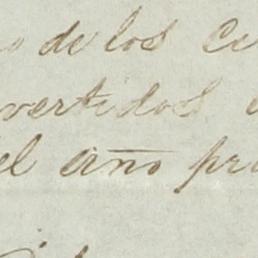 de los
vertidos
el año pr